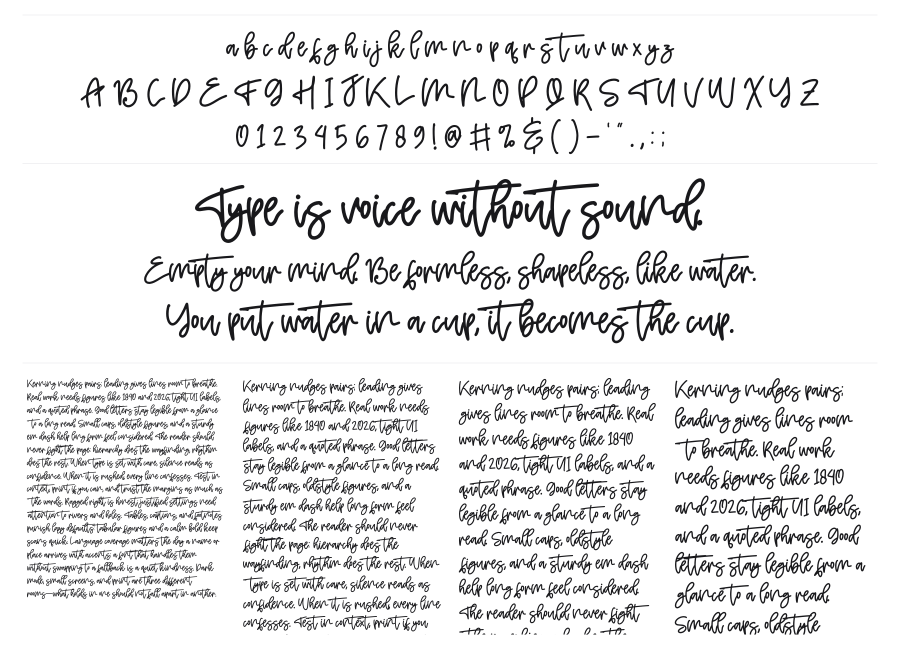 a b c d e f g h i j k l m n o p q r s t u v w x y z
A B C D E F G H I J K L M N O P Q R S T U V W X Y Z
0 1 2 3 4 5 6 7 8 9 ! @ # % & ( ) - ' " . , : ;
Type is voice without sound.
Empty your mind. Be formless, shapeless, like water.
You put water in a cup, it becomes the cup.
Kerning nudges pairs; leading gives lines room to breathe.
Real work needs figures like 1840 and 2026, tight UI labels,
and a quoted phrase. Good letters stay legible from a glance
to a long read. Small caps, oldstyle figures, and a sturdy
em dash help long form feel considered. The reader should
never fight the page: hierarchy does the wayfinding, rhythm
does the rest. When type is set with care, silence reads as
confidence. When it is rushed, every line confesses. Test in
context, print if you can, and trust the margins as much as
the words. Ragged right is honest; justified settings need
attention to rivers and holes. Tables, captions, and footnotes
punish lazy defaults: tabular figures and a calm bold keep
scans quick. Language coverage matters the day a name or
place arrives with accents; a font that handles them
without swapping to a fallback is a quiet kindness. Dark
mode, small screens, and print are three different
rooms—what holds in one should not fall apart in another.
Kerning nudges pairs; leading gives
lines room to breathe. Real work needs
figures like 1840 and 2026, tight UI
labels, and a quoted phrase. Good letters
stay legible from a glance to a long read.
Small caps, oldstyle figures, and a
sturdy em dash help long form feel
considered. The reader should never
fight the page: hierarchy does the
wayfinding, rhythm does the rest. When
type is set with care, silence reads as
confidence. When it is rushed, every line
confesses. Test in context, print if you
Kerning nudges pairs; leading
gives lines room to breathe. Real
work needs figures like 1840
and 2026, tight UI labels, and a
quoted phrase. Good letters stay
legible from a glance to a long
read. Small caps, oldstyle
figures, and a sturdy em dash
help long form feel considered.
The reader should never fight
the page: hierarchy does the
Kerning nudges pairs;
leading gives lines room
to breathe. Real work
needs figures like 1840
and 2026, tight UI labels,
and a quoted phrase. Good
letters stay legible from a
glance to a long read.
Small caps, oldstyle